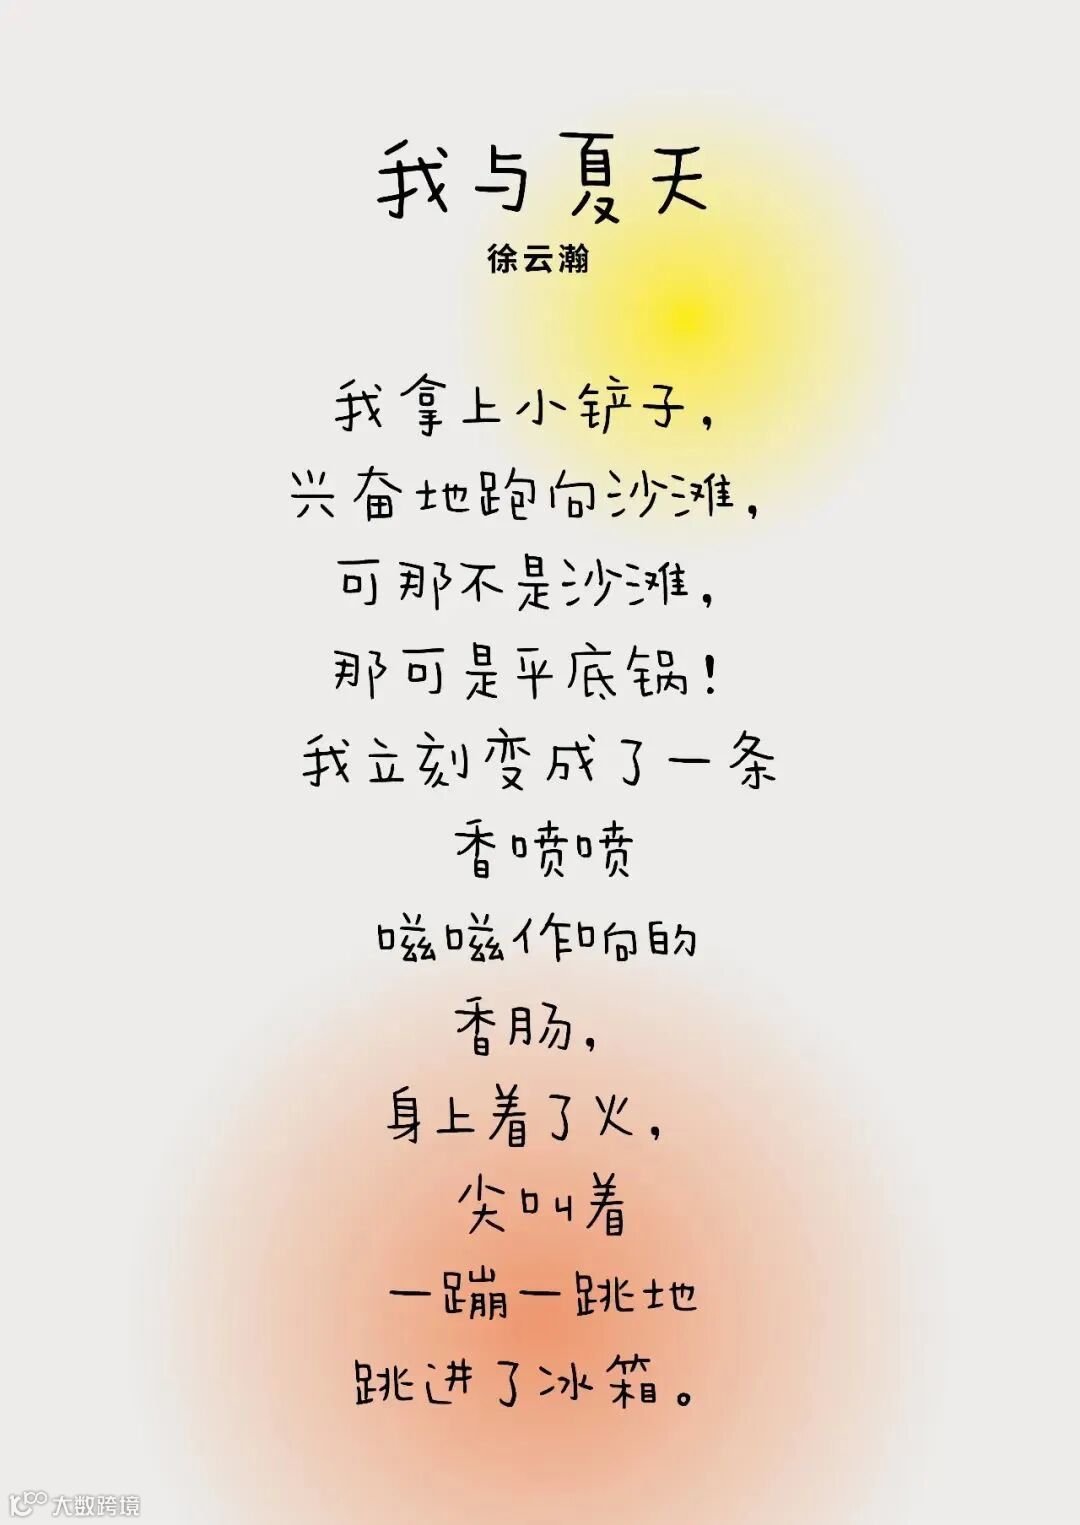 我与夏天
徐云瀚
我拿上小铲子，
兴奋地跑向沙滩，
可那不是沙滩，
那可是平底锅！
我立刻变成了一条
香喷喷
嗞嗞作响的
香肠，
身上着了火，
尖叫着
一蹦一跳地
跳进了冰箱。
大数跨境